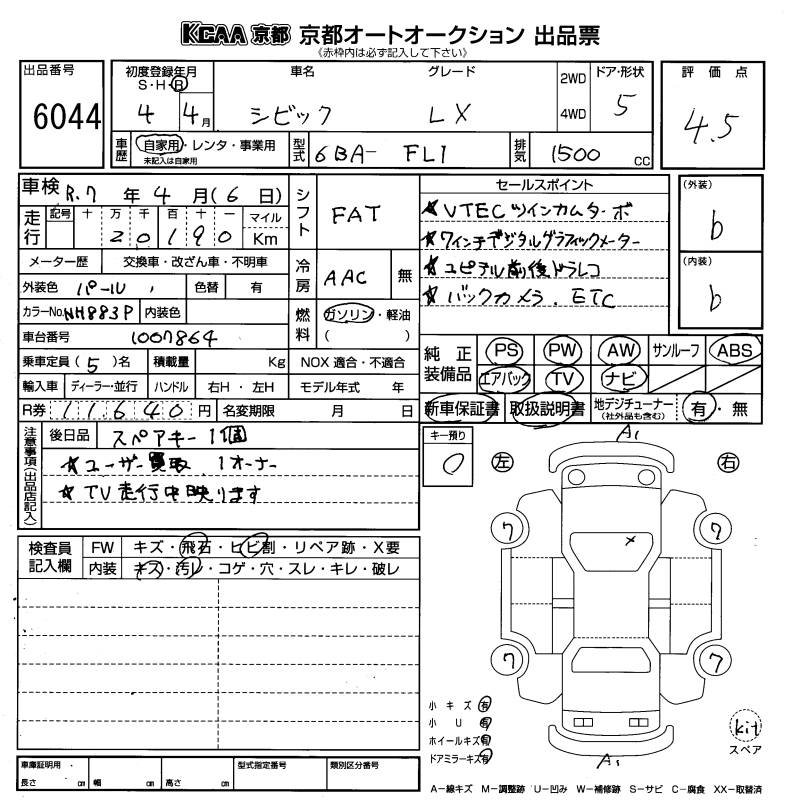 KCAA 京都 京都オートオークション 出品票
《赤枠内は必ず記入して下さい》
出品番号 6044
初度登録年月 S・H・R 4 4月
車名 シビック
グレード LX
2WD 4WD
ドア・形状 5
評価点 4.5
車歴 自家用・レンタ・事業用
未記入は自家用
型式 6BA- FL1
排気 1500 cc
車検 R.7 年 4 月(6 日)
シフト FAT
走行 記号 十 万 千 百 十 一 マイル
20190 Km
メーター歴 交換車・改ざん車・不明車
冷房 AAC 無
外装色 パール 色替 有
カラーNo. NH883P 内装色
燃料 ガソリン・軽油
( )
車台番号 1007864
乗車定員(5)名 積載量 Kg NOX 適合・不適合
輸入車 ディーラー・並行 ハンドル 右H・左H モデル年式 年
R券 11640 円 名変期限 月 日
セールスポイント
★ VTECツインカムターボ
★ 7インチデジタルグラフィックメーター
★ ユピテル前後ドラレコ
★ バックカメラ. ETC
(外装) b
(内装) b
純正装備品 PS PW AW サンルーフ ABS
エアバック TV ナビ
新車保証書 取扱説明書 地デジチューナー (社外品も含む) 有・無
注意事項(出品店記入)
後日品 スペアキー1個
★ユーザー買取 1オーナー
★TV走行中映ります
キー預り 0
検査員記入欄 FW キズ・飛石・ヒビ割・リペア跡・X要
内装 キズ・汚レ・コゲ・穴・スレ・キレ・破レ
A1
左 右
7 7
×
7 7
A1
小キズ 有
小U 有
ホイールキズ 有
ドアミラーキズ 有
kit
スペア
車庫証明用 長さ cm 幅 cm 高さ cm
型式指定番号 類別区分番号
A-線キズ M-調整跡 U-凹み W-補修跡 S-サビ C-腐食 XX-取替済